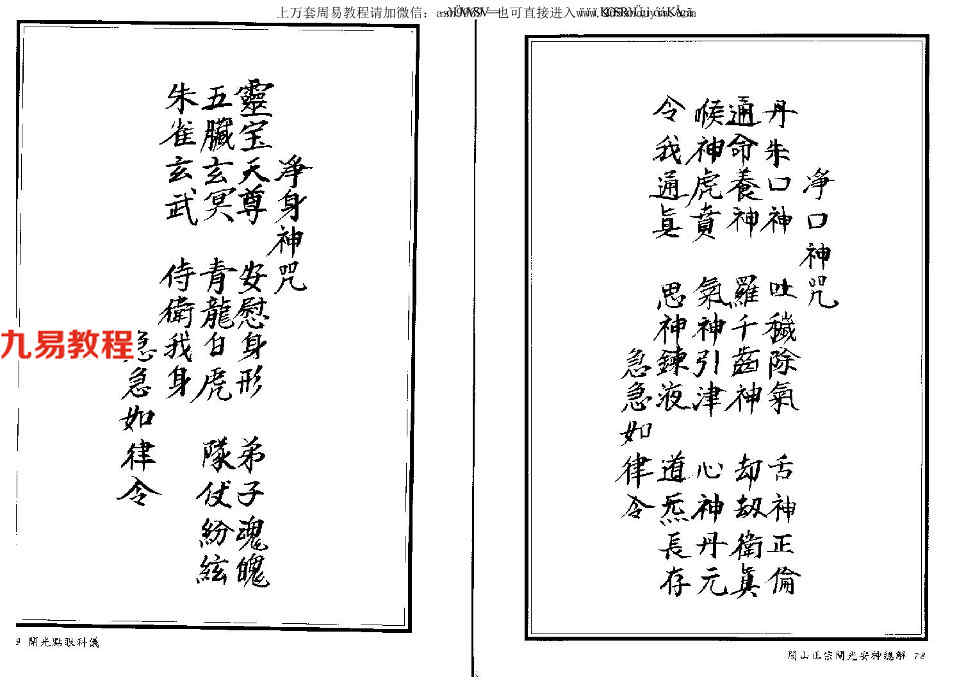 上万套周易教程请加微信：
也可直接进入
净口神咒
丹朱口神 吐穢除氣 舌神正倫
通命養神 羅千齒神 却刼衛眞
喉神虎賁 氣神引津 心神丹元
令我通眞 思神錬液 道炁長存
急急如律令
閭山正宗開光安神總解 78
净身神咒
靈宝天尊 安慰身形 弟子魂魄
五臟玄冥 青龍白虎 隊仗紛絃
朱雀玄武 侍衛我身
急急如律令
9 開光點眼科儀
九易教程